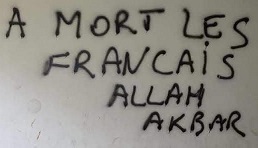 A MORT LES
FRANCAIS
ALLAH
AKBAR